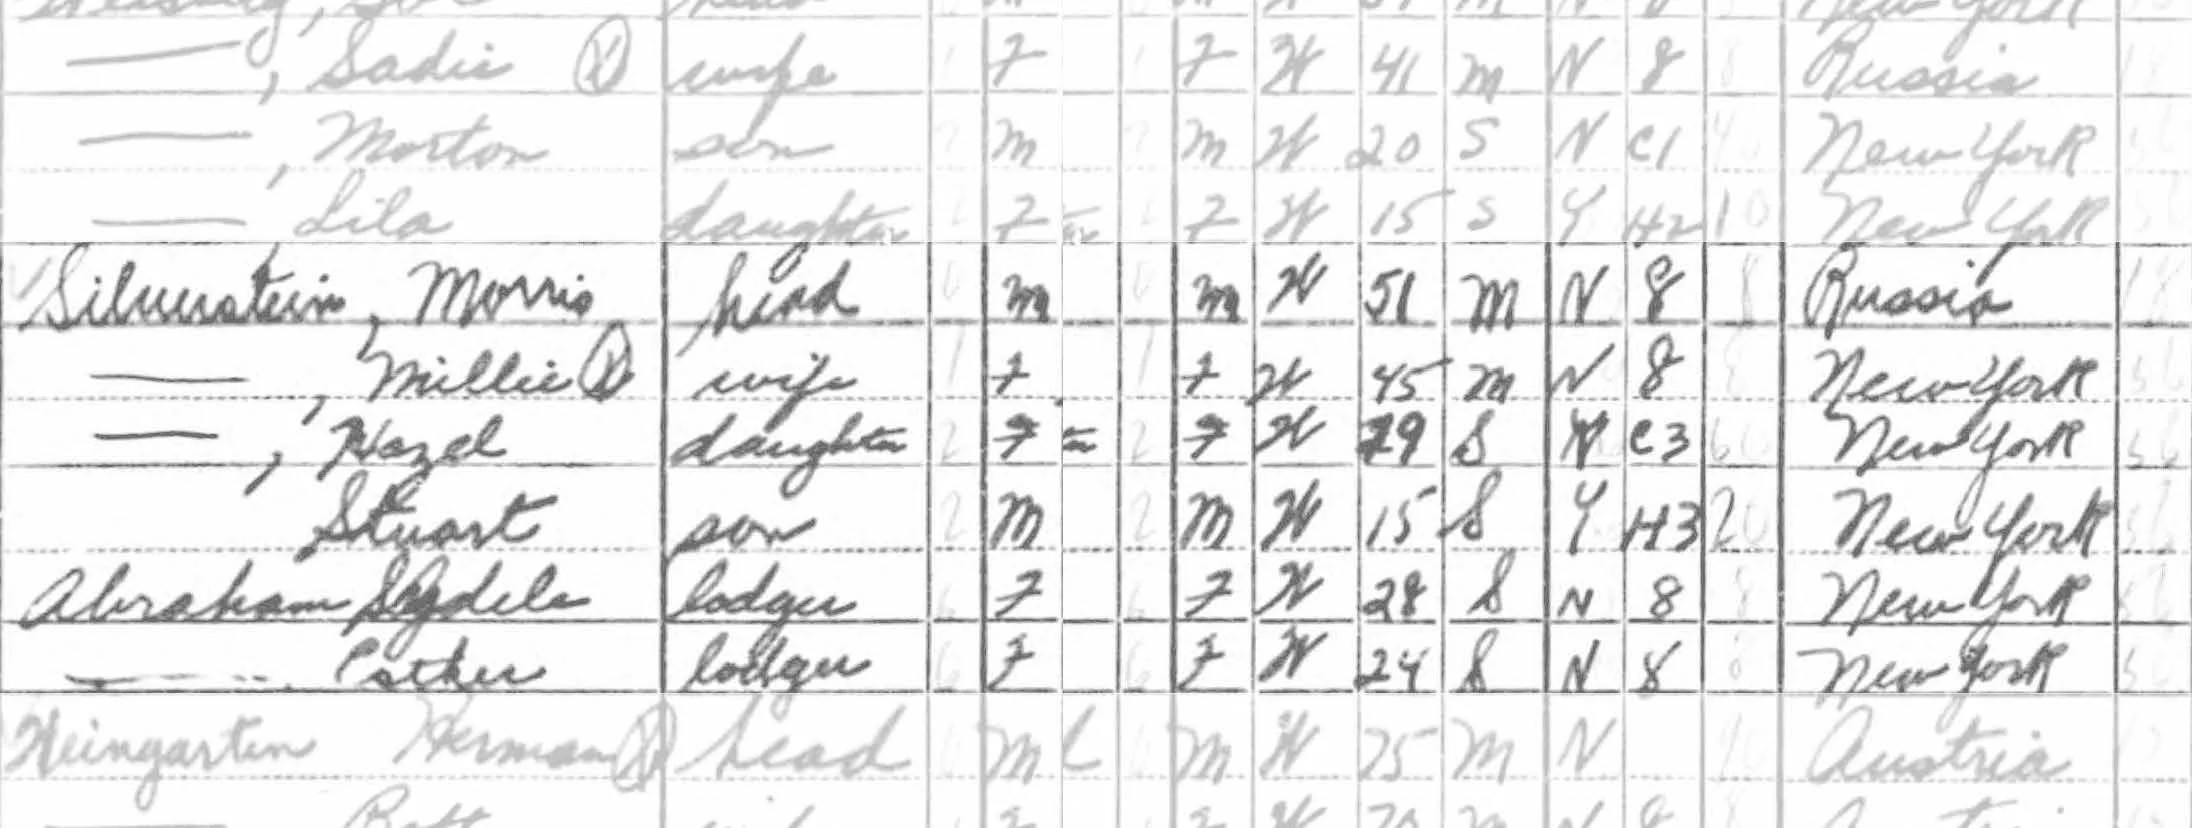 wife F F W 41 m N 8 Russia
—, Sadie
—, Morton son m m W 20 S N C1 New York
— Lila daughter F F W 15 S Y H2 10 New York
Silverstein, Morris head m m W 51 M N 8 8 Russia
—, Millie wife F F W 45 m N 8 8 New York
—, Hazel daughter F F W 19 S N C3 60 New York
Stuart son M M W 15 S Y H3 20 New York
Abraham lodger F F W 28 S N 8 8 New York
— Esther lodger F F W 24 S N 8 8 New York
Weingarten Herman head M M W 75 M N Austria